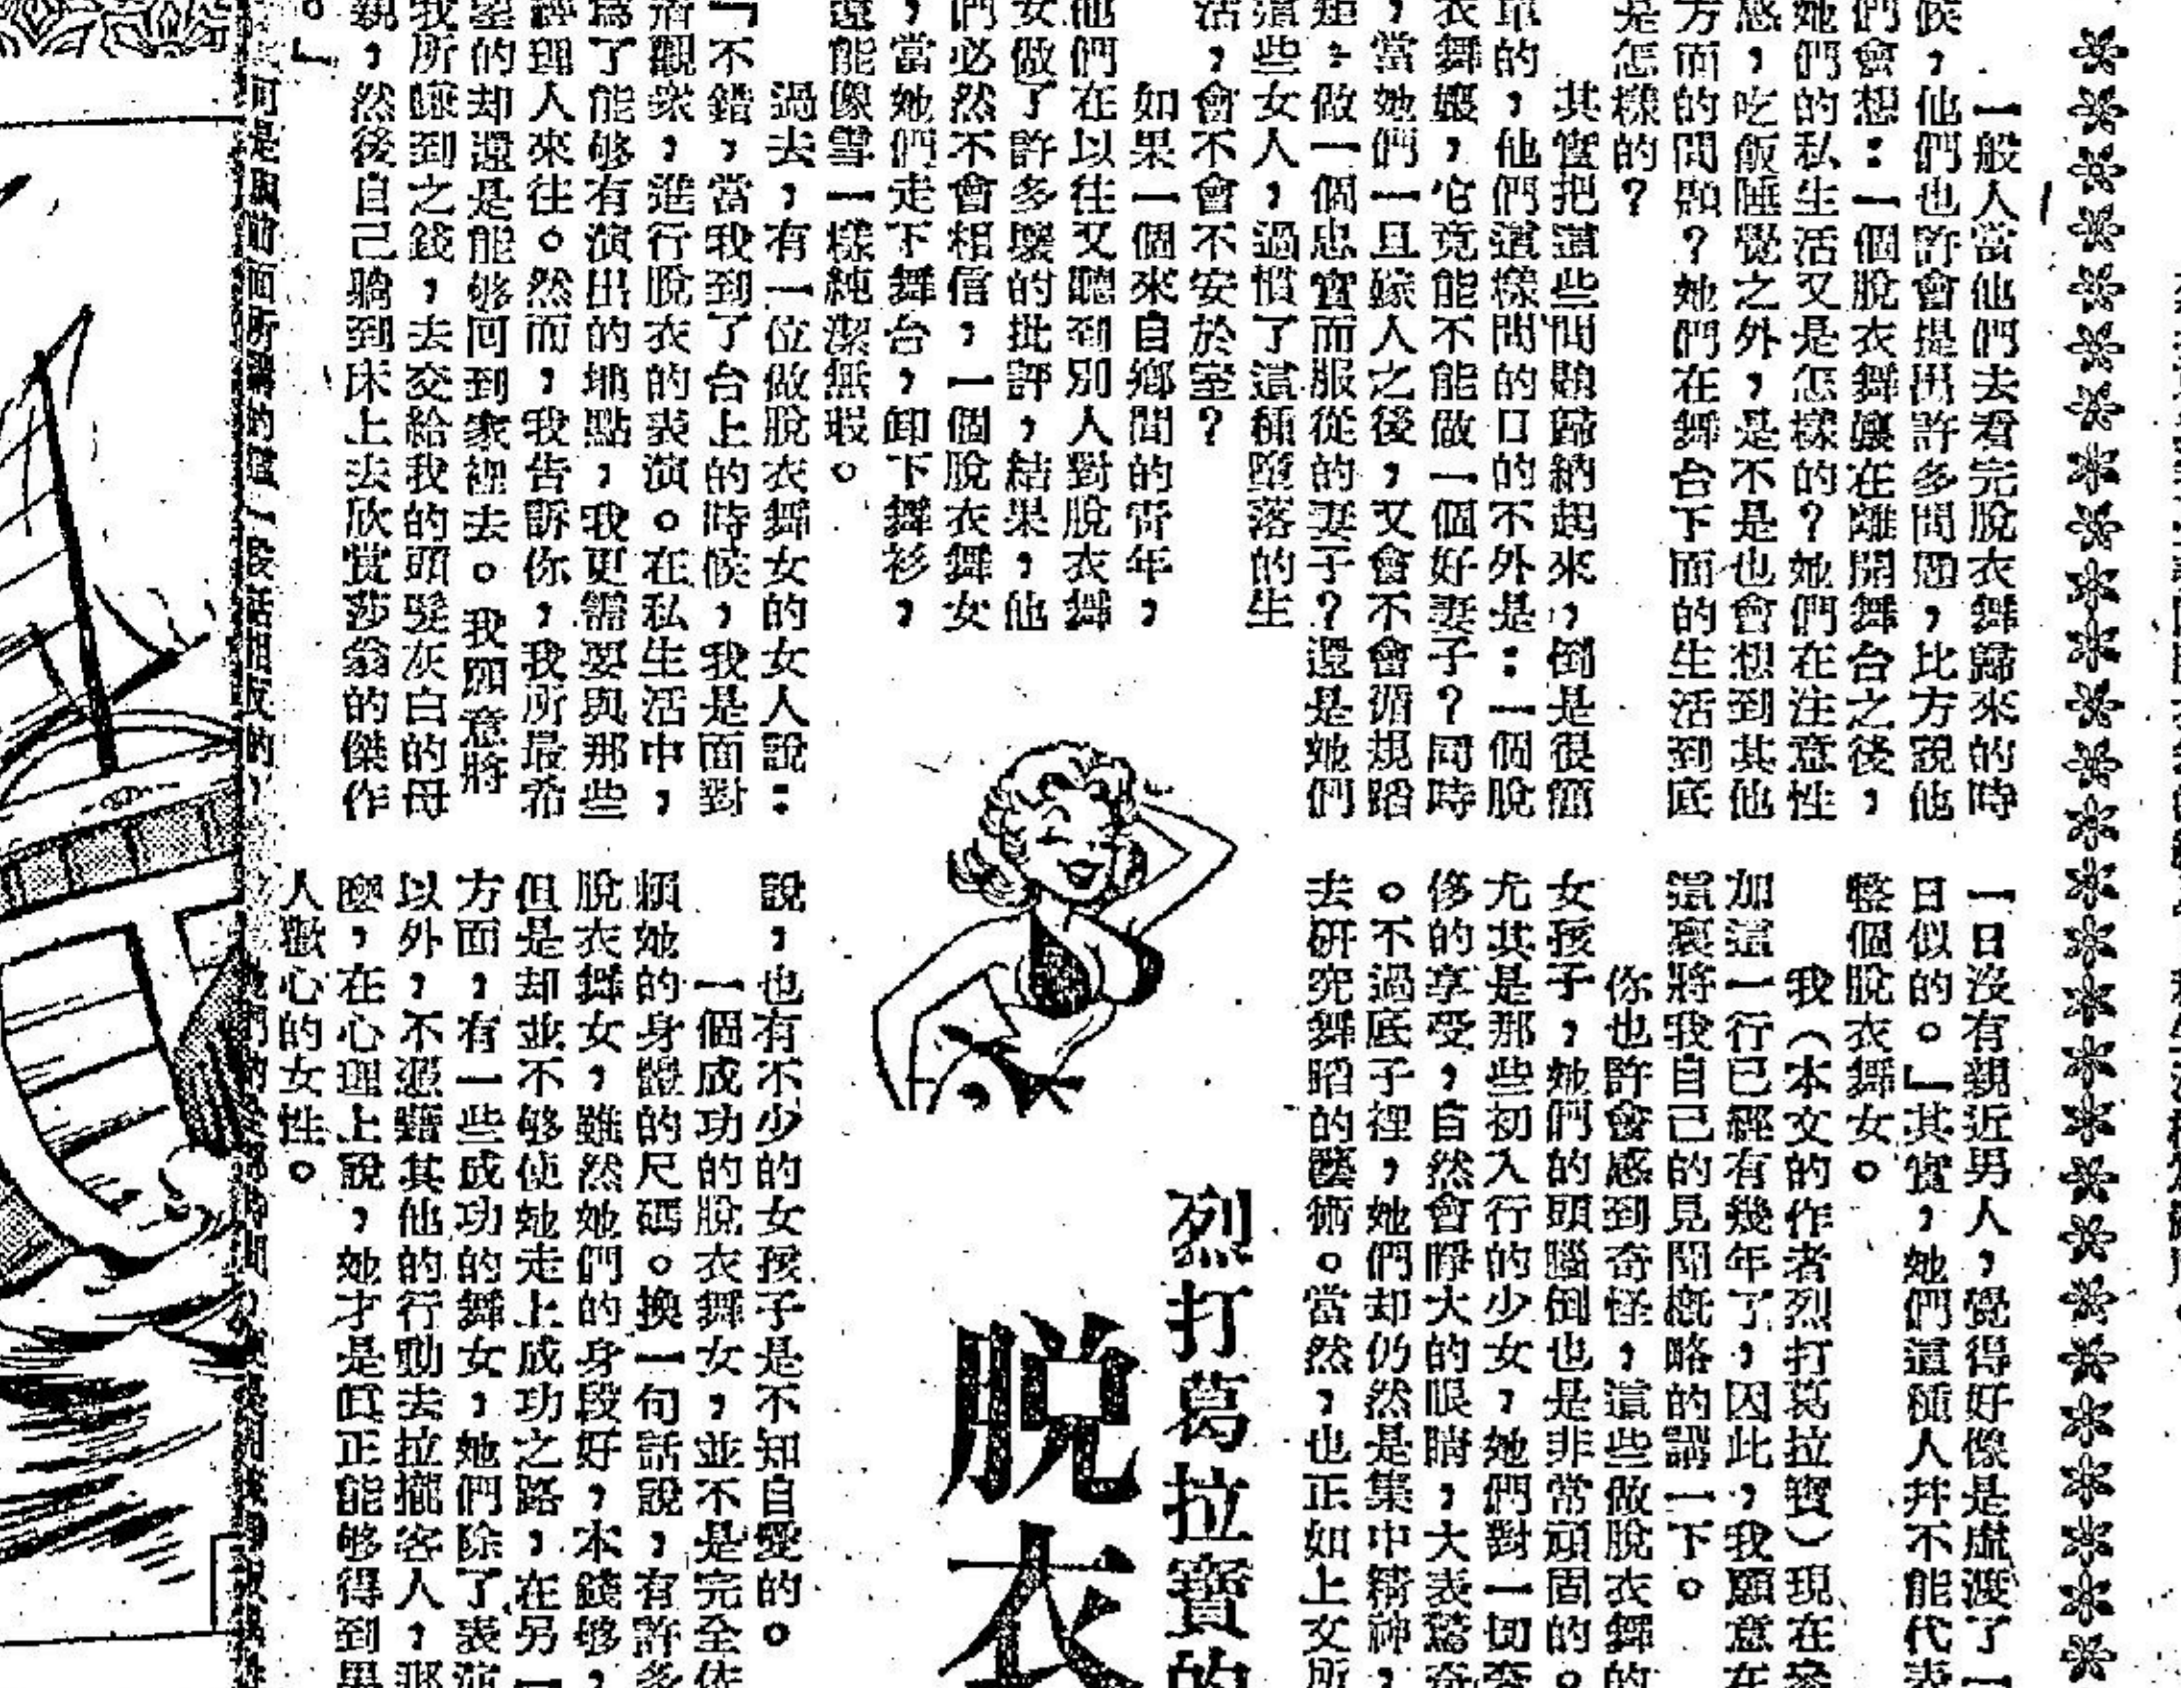 一般人當他們去看完脫衣舞歸來的時
候，他們也許會提出許多問題，比方說他
們會想：一個脫衣舞孃在離開舞台之後，
她們的私生活又是怎樣的？她們在注意性
感，吃飯睡覺之外，是不是也會想到其他
方面的問題？她們在舞台下面的生活到底
是怎樣的？
其實把這些問題歸納起來，倒是很簡
單的，他們這樣問的口的不外是：一個脫
衣舞孃，它竟能不能做一個好妻子？同時
，當她們一旦嫁人之後，又會不會循規蹈
矩：做一個忠實而服從的妻子？還是她們
這些女人，過慣了這種墮落的生
活，會不會不安於室？
如果一個來自鄉間的青年，
他們在以往又聽到別人對脫衣舞
女做了許多壞的批評，結果，他
們必然不會相信，一個脫衣舞女
，當她們走下舞台，卸下舞衫，
還能像雪一樣純潔無瑕。
過去，有一位做脫衣舞女的女人說：
「不錯，當我到了台上的時候，我是面對
着觀衆，進行脫衣的表演。在私生活中，
爲了能够有演出的地點，我更需要與那些
經理人來往。然而，我告訴你，我所最希
望的却還是能够回到家裡去。我願意將
我所賺到之錢，去交給我的頭髮灰白的母
親，然後自己躺到床上去欣賞莎翁的傑作
。」
一日沒有親近男人，覺得好像是虛渡了一
日似的。」其實，她們這種人幷不能代表
整個脫衣舞女。
我（本文的作者烈打葛拉寶）現在參
加這一行已經有幾年了，因此，我願意在
這裏將我自己的見聞概略的講一下。
你也許會感到奇怪，這些做脫衣舞的
女孩子，她們的頭腦倒也是非常頑固的。
尤其是那些初入行的少女，她們對一切奢
侈的享受，自然會睜大的眼睛，大表驚奇
。不過底子裡，她們却仍然是集中精神，
去研究舞蹈的藝術。當然，也正如上文所
烈打葛拉寶的
脫衣
說，也有不少的女孩子是不知自愛的。
一個成功的脫衣舞女，並不是完全依
賴她的身體的尺碼。換一句話說，有許多
脫衣舞女，雖然她們的身段好，本錢够，
但是却並不够使她走上成功之路，在另一
方面，有一些成功的舞女，她們除了表演
以外，不憑藉其他的行動去拉攏客人，那
麼，在心理上說，她才是眞正能够得到男
人歡心的女性。